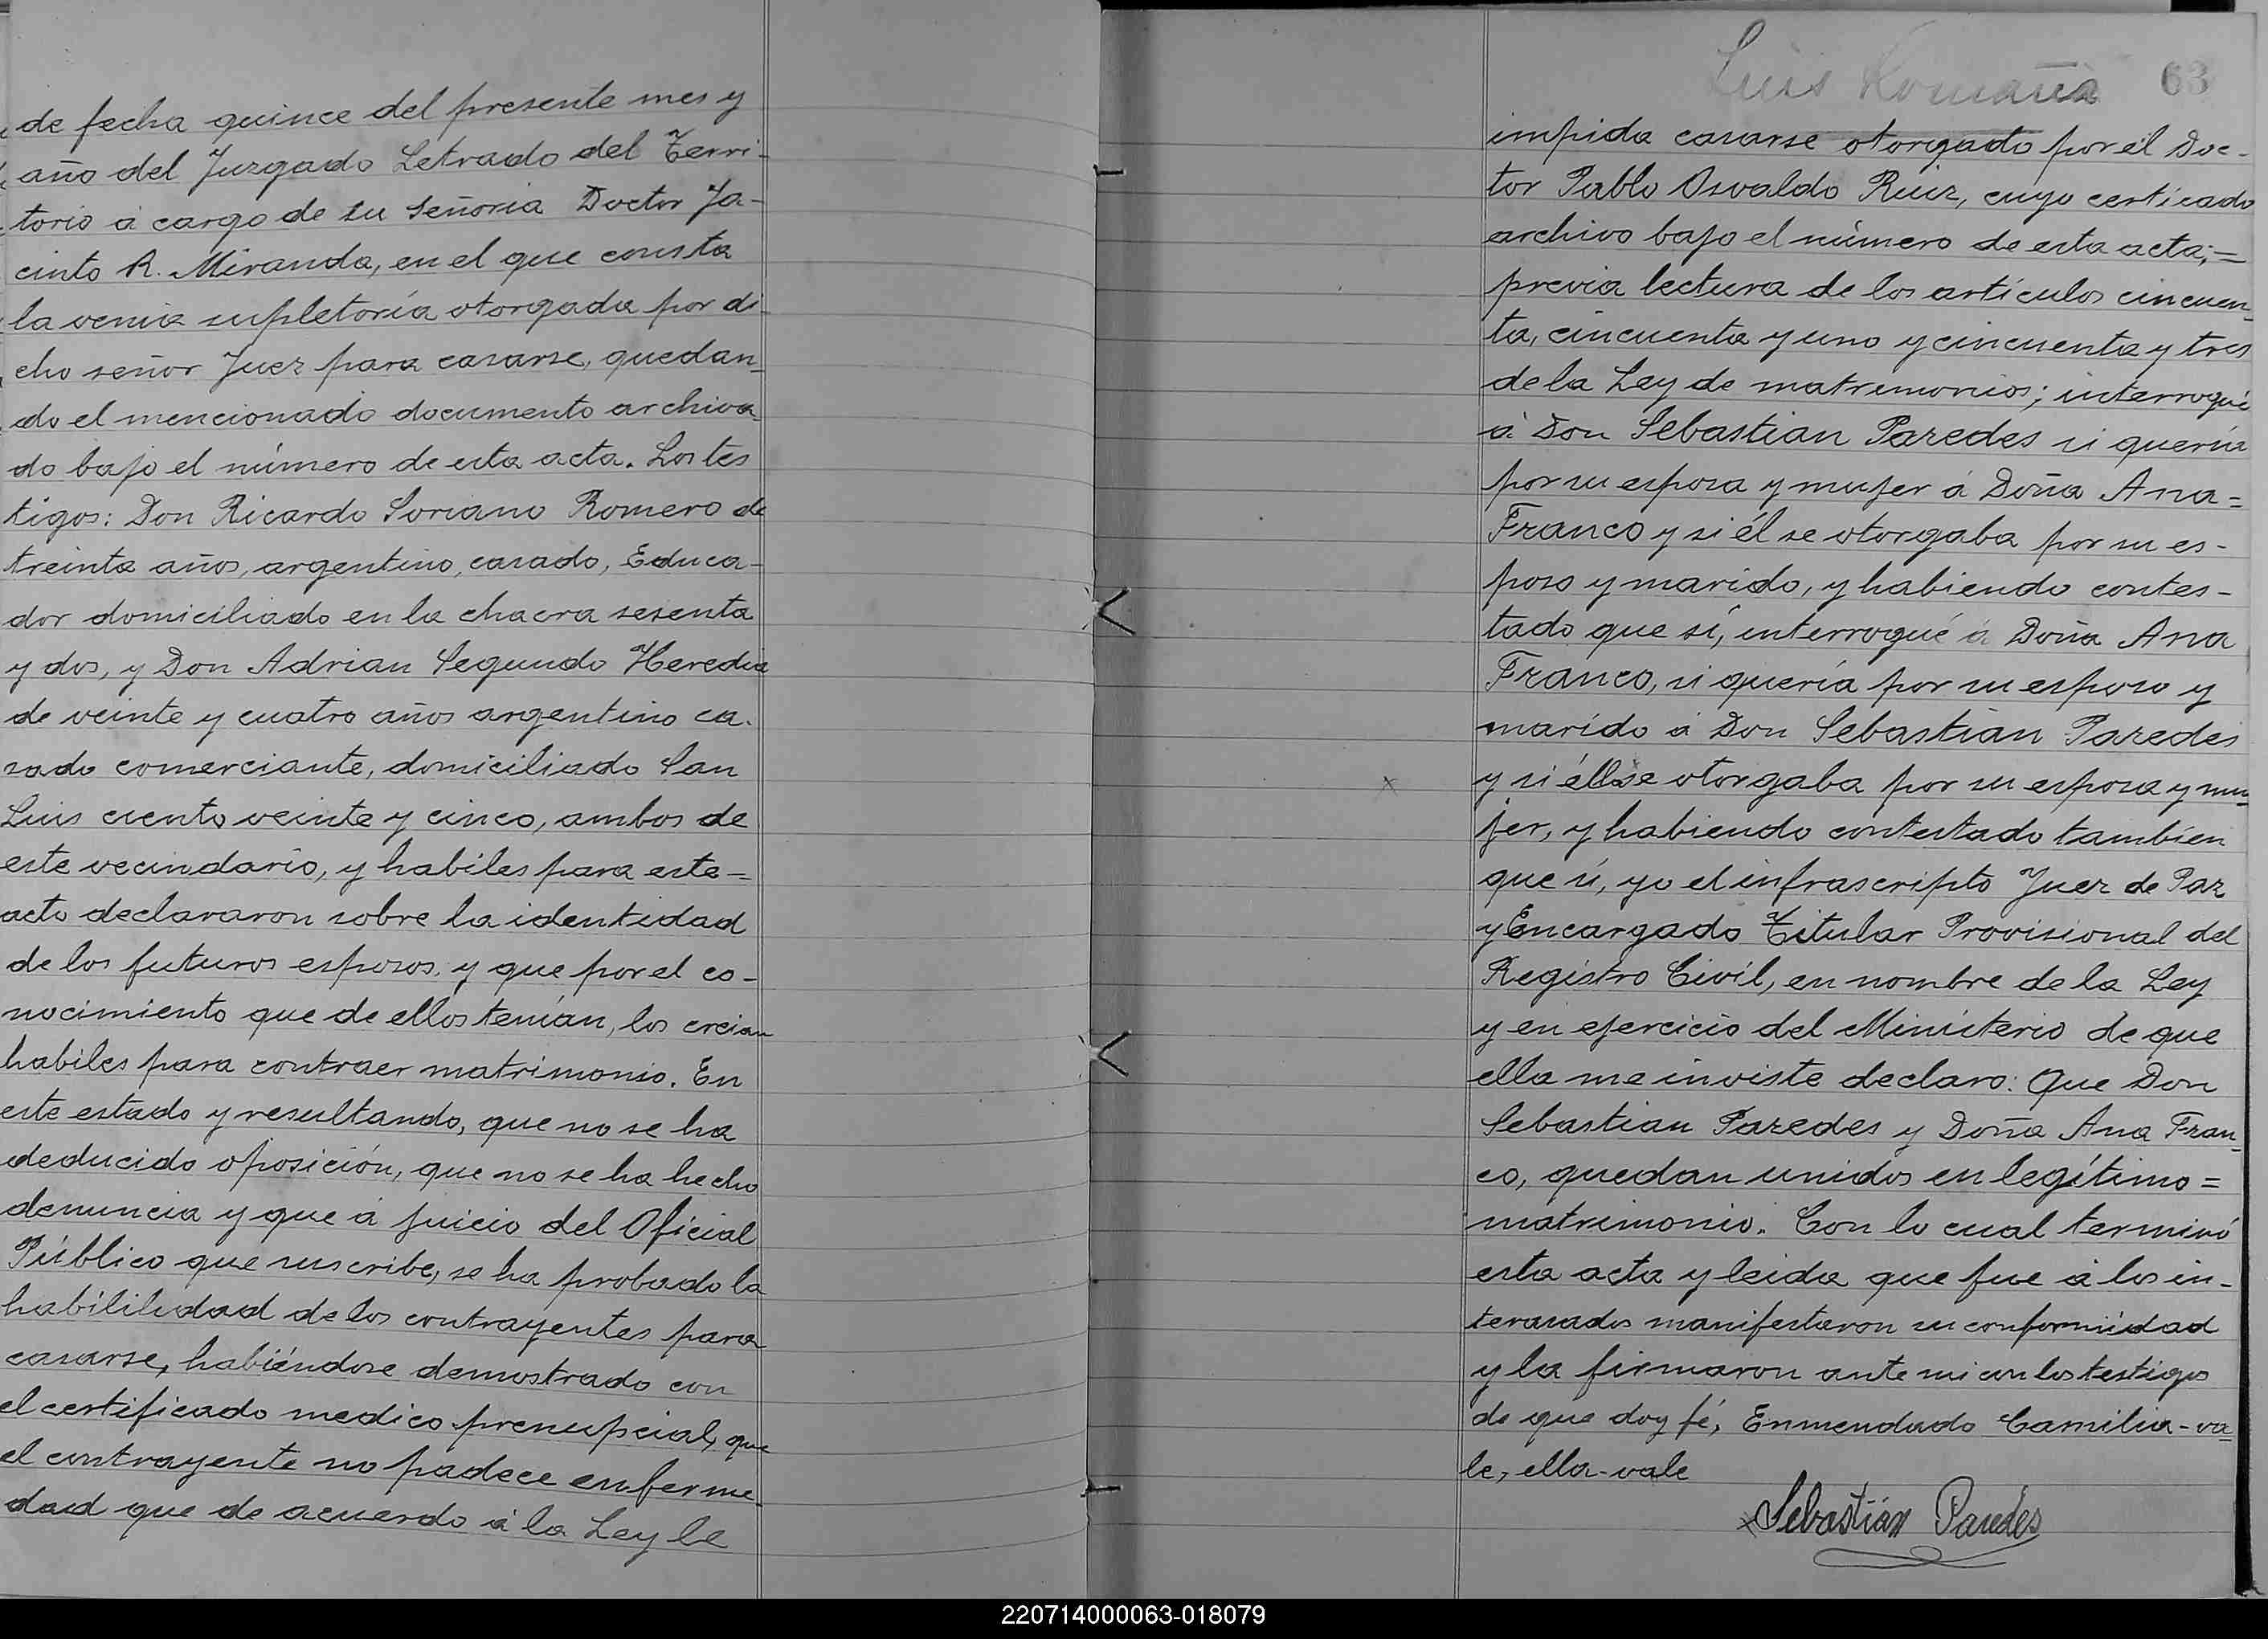 de fecha quince del presente mes y
año del Juzgado Letrado del Terri-
torio á cargo de su Señoria Doctor Ja-
cinto R. Miranda, en el que consta
la venia supletoría otorgada por di-
cho señor Juez para casarse, quedan-
do el mencionado documento archiva-
do bajo el número de esta acta. Los tes
tigos: Don Ricardo Soriano Romero de
treinta años, argentino, casado, Educa-
dor domiciliado en la chacra sesenta
y dos, y Don Adrian Segundo Heredia
de veinte y cuatro años argentino ca-
sado comerciante, domiciliado San
Luis ciento veinte y cinco, ambos de
este vecindario, y habiles para este=
acto declararon sobre la identidad
de los futuros esposos, y que por el co-
nocimiento que de ellos tenían, los creian
habiles para contraer matrimonio. En
este estado y resultando, que no se ha
deducido oposición, que no se ha hecho
denuncia y que á juicio del Oficial
Público que suscribe, se ha probado la
habililidad de los contrayentes para
casarse, habiéndose demostrado con
el certificado medico prenupcial, que
el contrayente no padece enferme-
dad que de acuerdo á la Ley le
Luis Romaña 63
impida casarse otorgado por el Doc-
tor Pablo Osvaldo Ruiz, cuyo certicado
archivo bajo el número de esta acta;=
previa lectura de los artículos cincuen-
ta, cincuenta y uno y cincuenta y tres
de la Ley de matrimonios; interrogué
á Don Sebastian Paredes si quería
por su esposa y mujer á Doña Ana=
Franco y si él se otorgaba por su es-
poso y marido, y habiendo contes-
tado que sí, interrogué á Doña Ana
Franco, si quería por su esposo y
marido á Don Sebastian Paredes
x y si élla se otorgaba por su esposa y mu-
jer, y habiendo contestado tambien
que si, yo el infrascripto Juez de Paz
y Encargado Titular Provisional del
Registro Civíl, en nombre de la Ley
y en ejercicio del Ministerio de que
ella me inviste declaro: Que Don
Sebastian Paredes y Doña Ana Fran-
co, quedan unidos en legítimo=
matrimonio. Con lo cual terminó
esta acta y leida que fue á los in-
terasados manifestaron su conformidad
y la firmaron ante mi con los testigos
de que doy fé, Enmendado Camilia-va-
le, ella-vale
x Sebastián Paredes
220714000063-018079